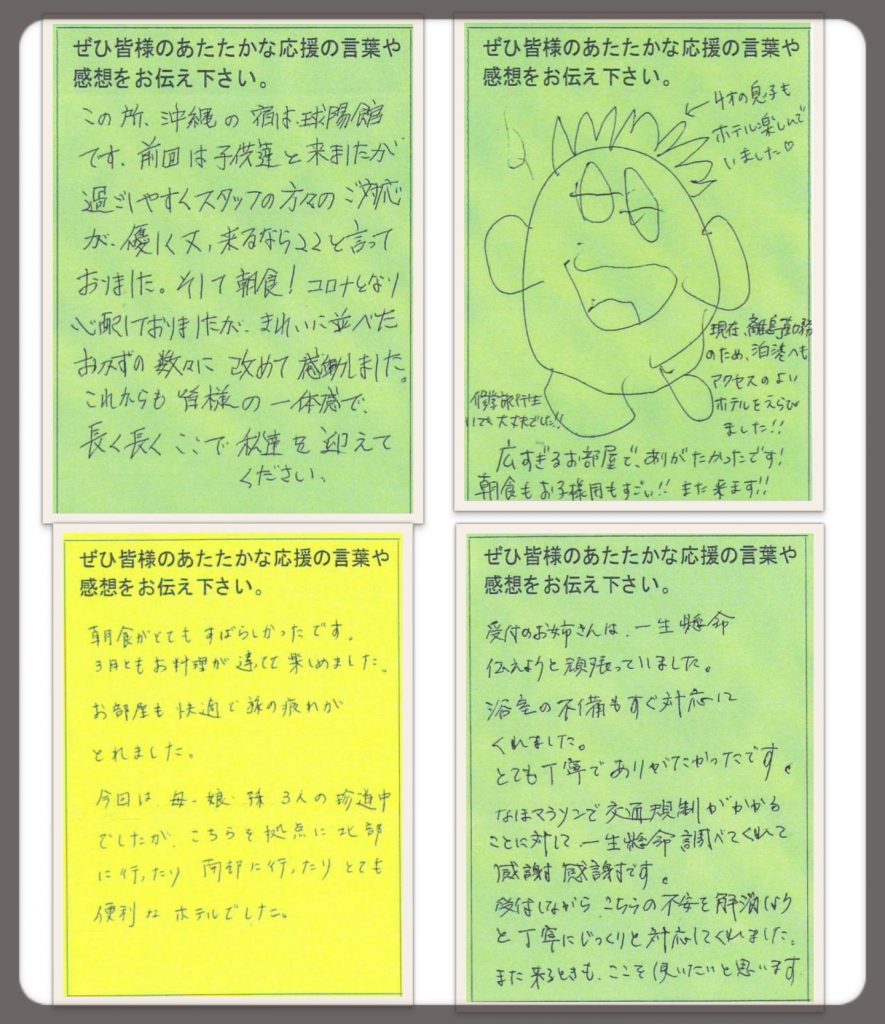 ぜひ皆様のあたたかな応援の言葉や
感想をお伝え下さい。
この所、沖縄の宿は、球陽館
です。前回は子供達と来ましたが
過ごしやすくスタッフの方々のご対応
が、優しく又、来るならココと言って
おりました。そして朝食！コロナとなり
心配しておりましたが、きれいに並べた
おかずの数々に改めて感動しました。
これからも皆様の一体感で、
長く長くここで私達を迎えて
ください、
ぜひ皆様のあたたかな応援の言葉や
感想をお伝え下さい。
←4才の息子も
ホテル楽しんで
いました♡
現在、離島勤務
のため、泊港へも
アクセスのよい
ホテルをえらび
ました!!
修学旅行生
いても大丈夫でした!!
広すぎるお部屋で、ありがたかったです！
朝食もお子様用もすごい!! また来ます!!
ぜひ皆様のあたたかな応援の言葉や
感想をお伝え下さい。
朝食がとてもすばらしかったです。
3日ともお料理が違てて楽しめました。
お部屋も快適で旅の疲れが
とれました。
今回は母・娘・孫 3人の珍道中
でしたが、こちらを拠点に北部
に行ったり 南部に行ったりとても
便利なホテルでした。
ぜひ皆様のあたたかな応援の言葉や
感想をお伝え下さい。
受付のお姉さんは、一生懸命
伝えようと頑張っていました。
浴室の不備もすぐ対応して
くれました。
とても丁寧でありがたかったです。
なはマラソンで交通規制がかかる
ことに対して一生懸命調べてくれて
感謝 感謝です。
受付しながらこちらの不安を解消しよう
と丁寧にじっくりと対応してくれました。
また来るときも、ここを使いたいと思います